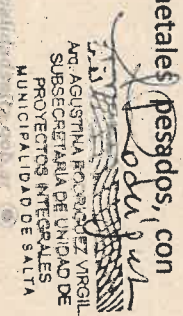 metales pesados, con
Rodriguez
Arq. AGUSTINA RODRIGUEZ VIRGILI
SUBSECRETARIA DE UNIDAD DE
PROYECTOS INTEGRALES
MUNICIPALIDAD DE SALTA